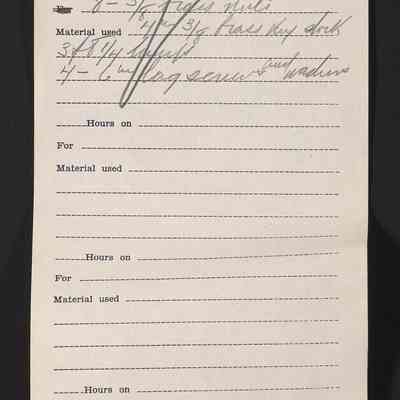 For 8 - 3/8 brass nuts
Material used 4 3/8 brass hex stock
3 of 8 1/4
4 - 6" lag screws and washers
Hours on
For
Material used
Hours on
For
Material used
Hours on